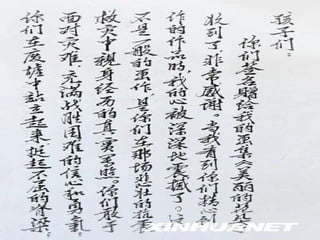 孩子们：
你们签名赠给我的画集《美丽的
收到了，非常感谢。当我看到你们精心
作的作品时，我的心被深深地震撼了。这
不是一般的画作，是你们在那场悲壮的抗震
救灾中亲身经历的真实写照。你们敢于
面对灾难，充满战胜困难的信心和勇气，
你们在废墟中站立起来，挺起不屈的脊梁，
XINHUANET